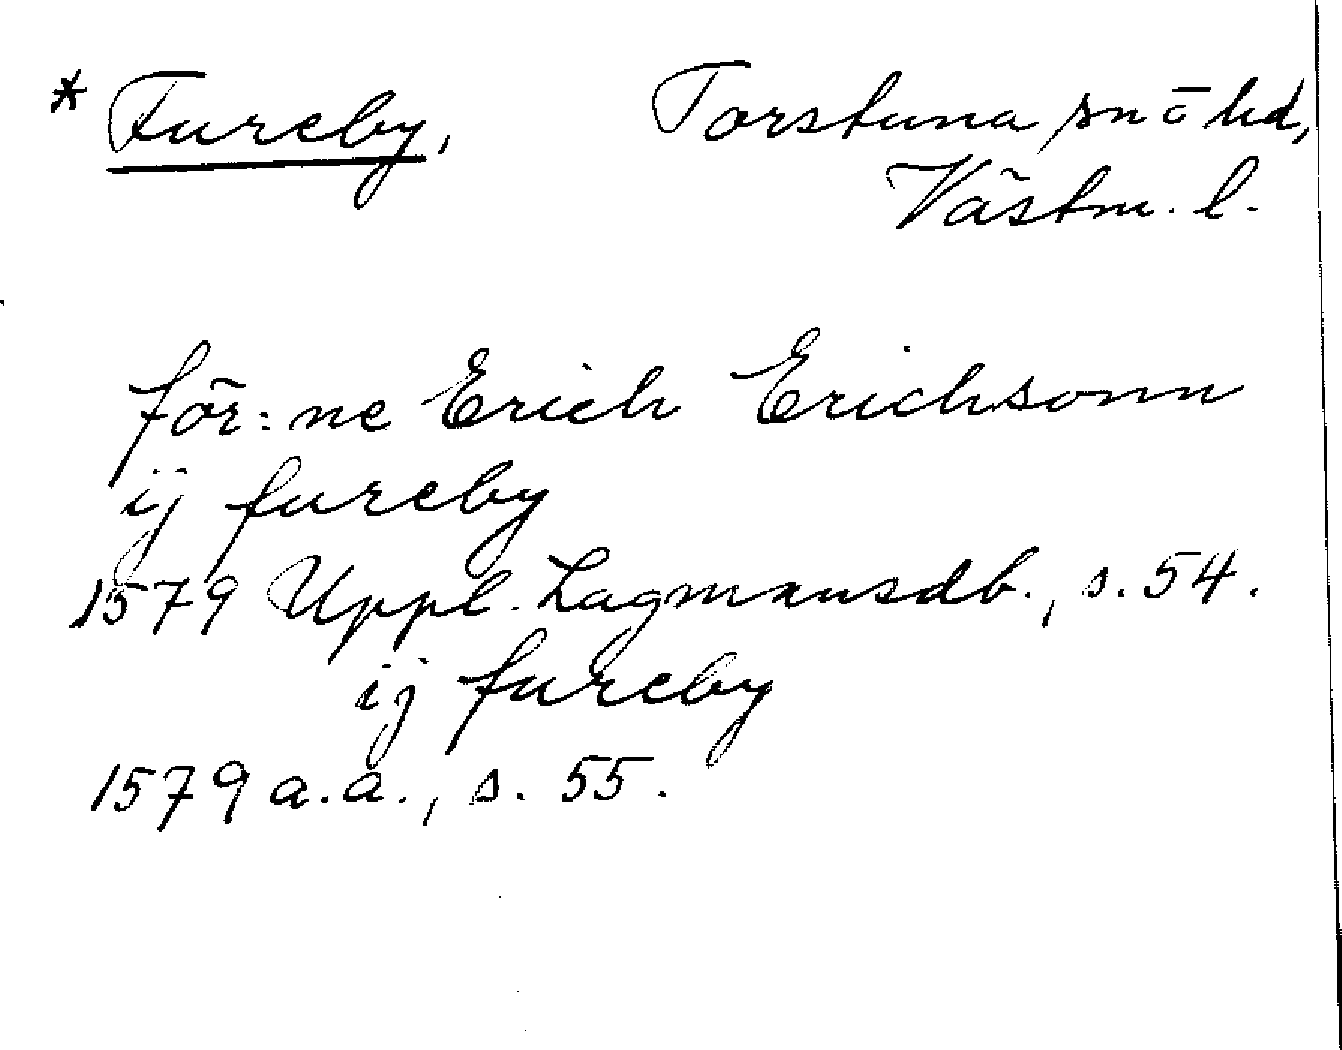 * Fureby, Torstuna sn o hd,
Västm. l.
för:ne Erich Erichsonn
ij fureby
1579 Uppl. Lagmansdb., s. 54.
ij fureby
1579 a.a., s. 55.